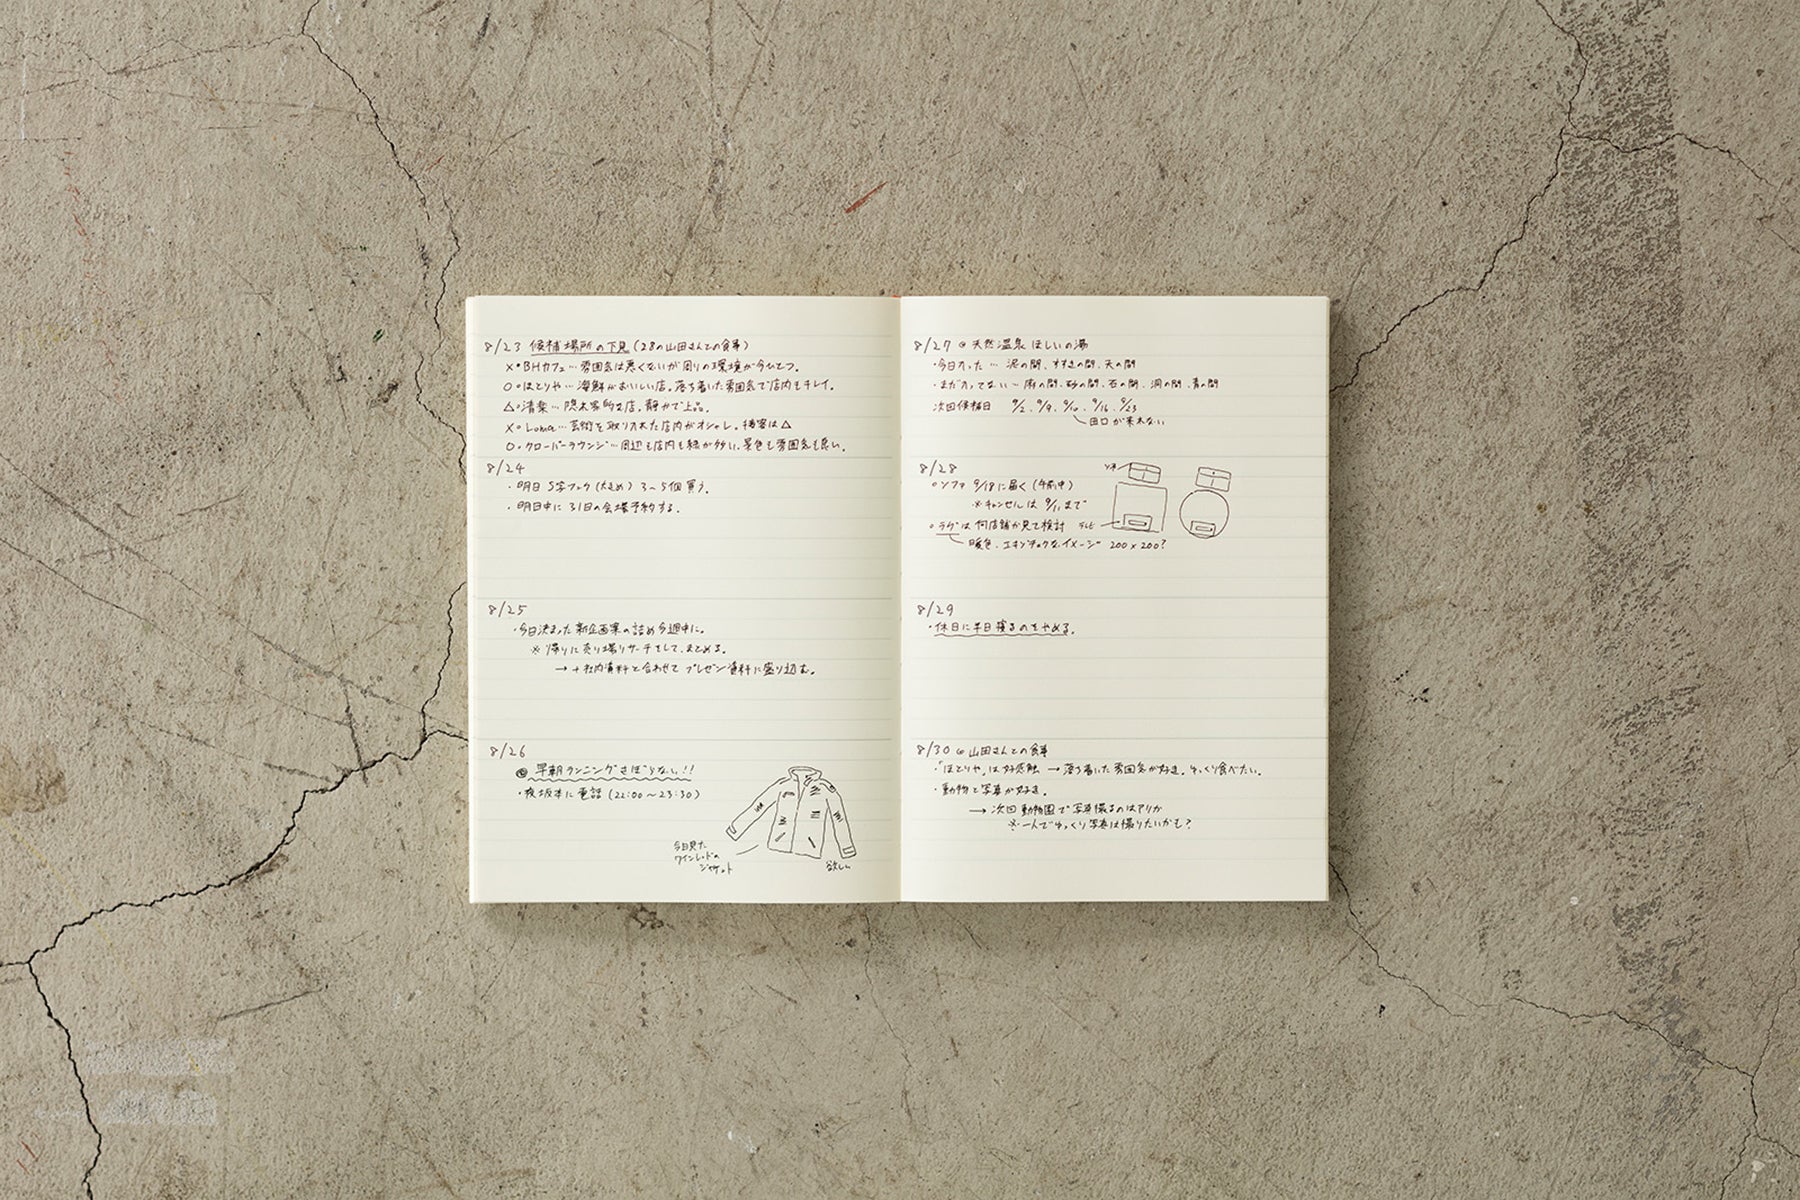 8/23 候補場所の下見(28の山田さんとの食事)
×・BHカフェ…雰囲気は悪くないが周りの環境が今ひとつ。
○・ほとりや…海鮮がおいしい店。落ち着いた雰囲気で店内もキレイ。
△・清楽…隠れ家的な店。静かで上品。
×・Loma…芸術を取り入れた店内がオシャレ。接客は△
○・クローバーラウンジ…周辺も店内も緑が多い。景色も雰囲気も良い。
8/24
・明日 S字フック(大きめ)3〜5個買う。
・明日中に31日の会場予約する。
8/25
・今日決まった新企画案の詰め今週中に。
※帰りに売り場リサーチをして、まとめる。
→+社内資料と合わせてプレゼン資料に盛り込む。
8/26
◎早朝ランニングさぼらない!!
・夜坂本に電話(22:00〜23:30)
今日見た
ワインレッドの
ジャケット
欲しい
8/27 @天然温泉 ほしいの湯
・今日入った…泥の間、すすきの間、天の間
・まだ入ってない…雨の間、砂の間、石の間、洞の間、青の間
次回候補日 9/2、9/9、9/10、9/16、9/23
田口が来れない
8/28
○ソファ 9/18に届く(午前中)
※キャンセルは 9/11まで
○ラグは何店舗か見て検討
暖色、エキゾチックなイメージ 200×200?
ソファ
テレビ
8/29
・休日に半日寝るのをやめる。
8/30 @山田さんとの食事
・「ほとりや」は好感触→落ち着いた雰囲気が好き。ゆっくり食べたい。
・動物と写真が好き。
→次回動物園で写真撮るのはアリか
※一人でゆっくり写真は撮りたいかも?